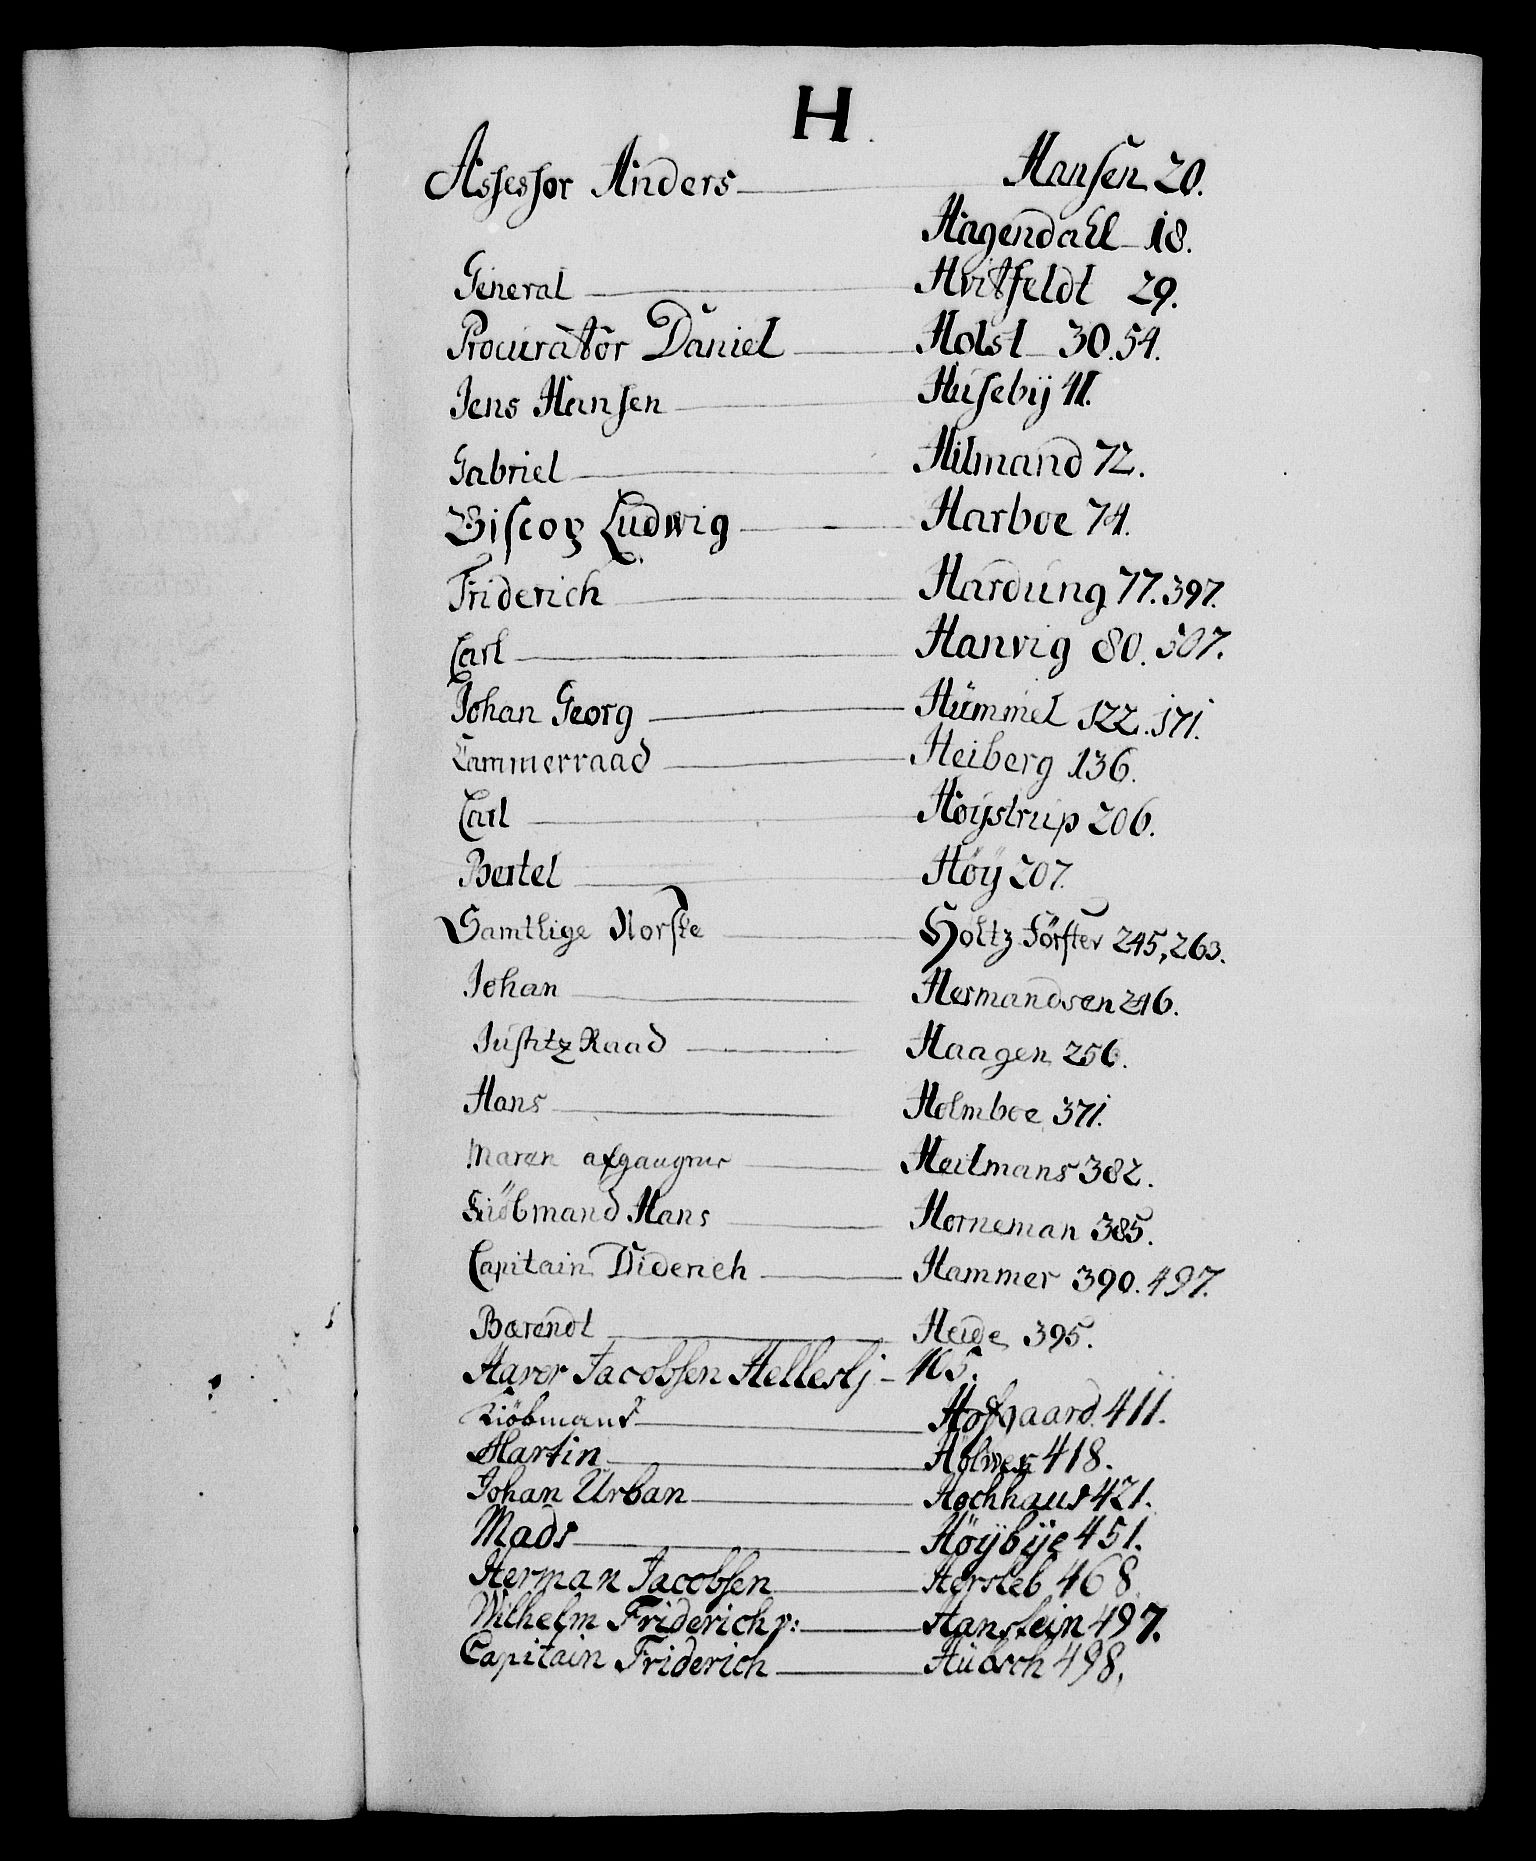 H.
Assessor Anders Hansen 20.
Hagendahl 18.
General Hvitfeldt 29.
Procurator Daniel Holst 30.54.
Jens Hansen Husebÿ 41.
Gabriel Hilmand 72.
Biscop Ludwig Harboe 74.
Friderich Hardung 77.397.
Carl Hanvig 80.507.
Johan Georg Hümmel 122.171.
Cammerraad Heiberg 136.
Carl Høÿstrup 206.
Bertel Höÿ 207.
Samtlige Norske Holtz Förster 245,263.
Johan Hermandsen 246.
Justitz Raad Haagen 256.
Hans Holmboe 371.
Maren afgangne Heilmans 382.
Kiöbmand Hans Horneman 385.
Capitain Diderich Hammer 390.497.
Bærendt Heide 395.
Jacobsen 405.
Kiöbmand Hofgaard 411.
Martin 418.
Johan Urban Hochhaus 421.
Mads Höÿbÿe 451.
Herman Jacobsen Hersleb 468
Wilhelm Friderich v: Hanstein 497.
Capitain Friderich Hübsch 498.